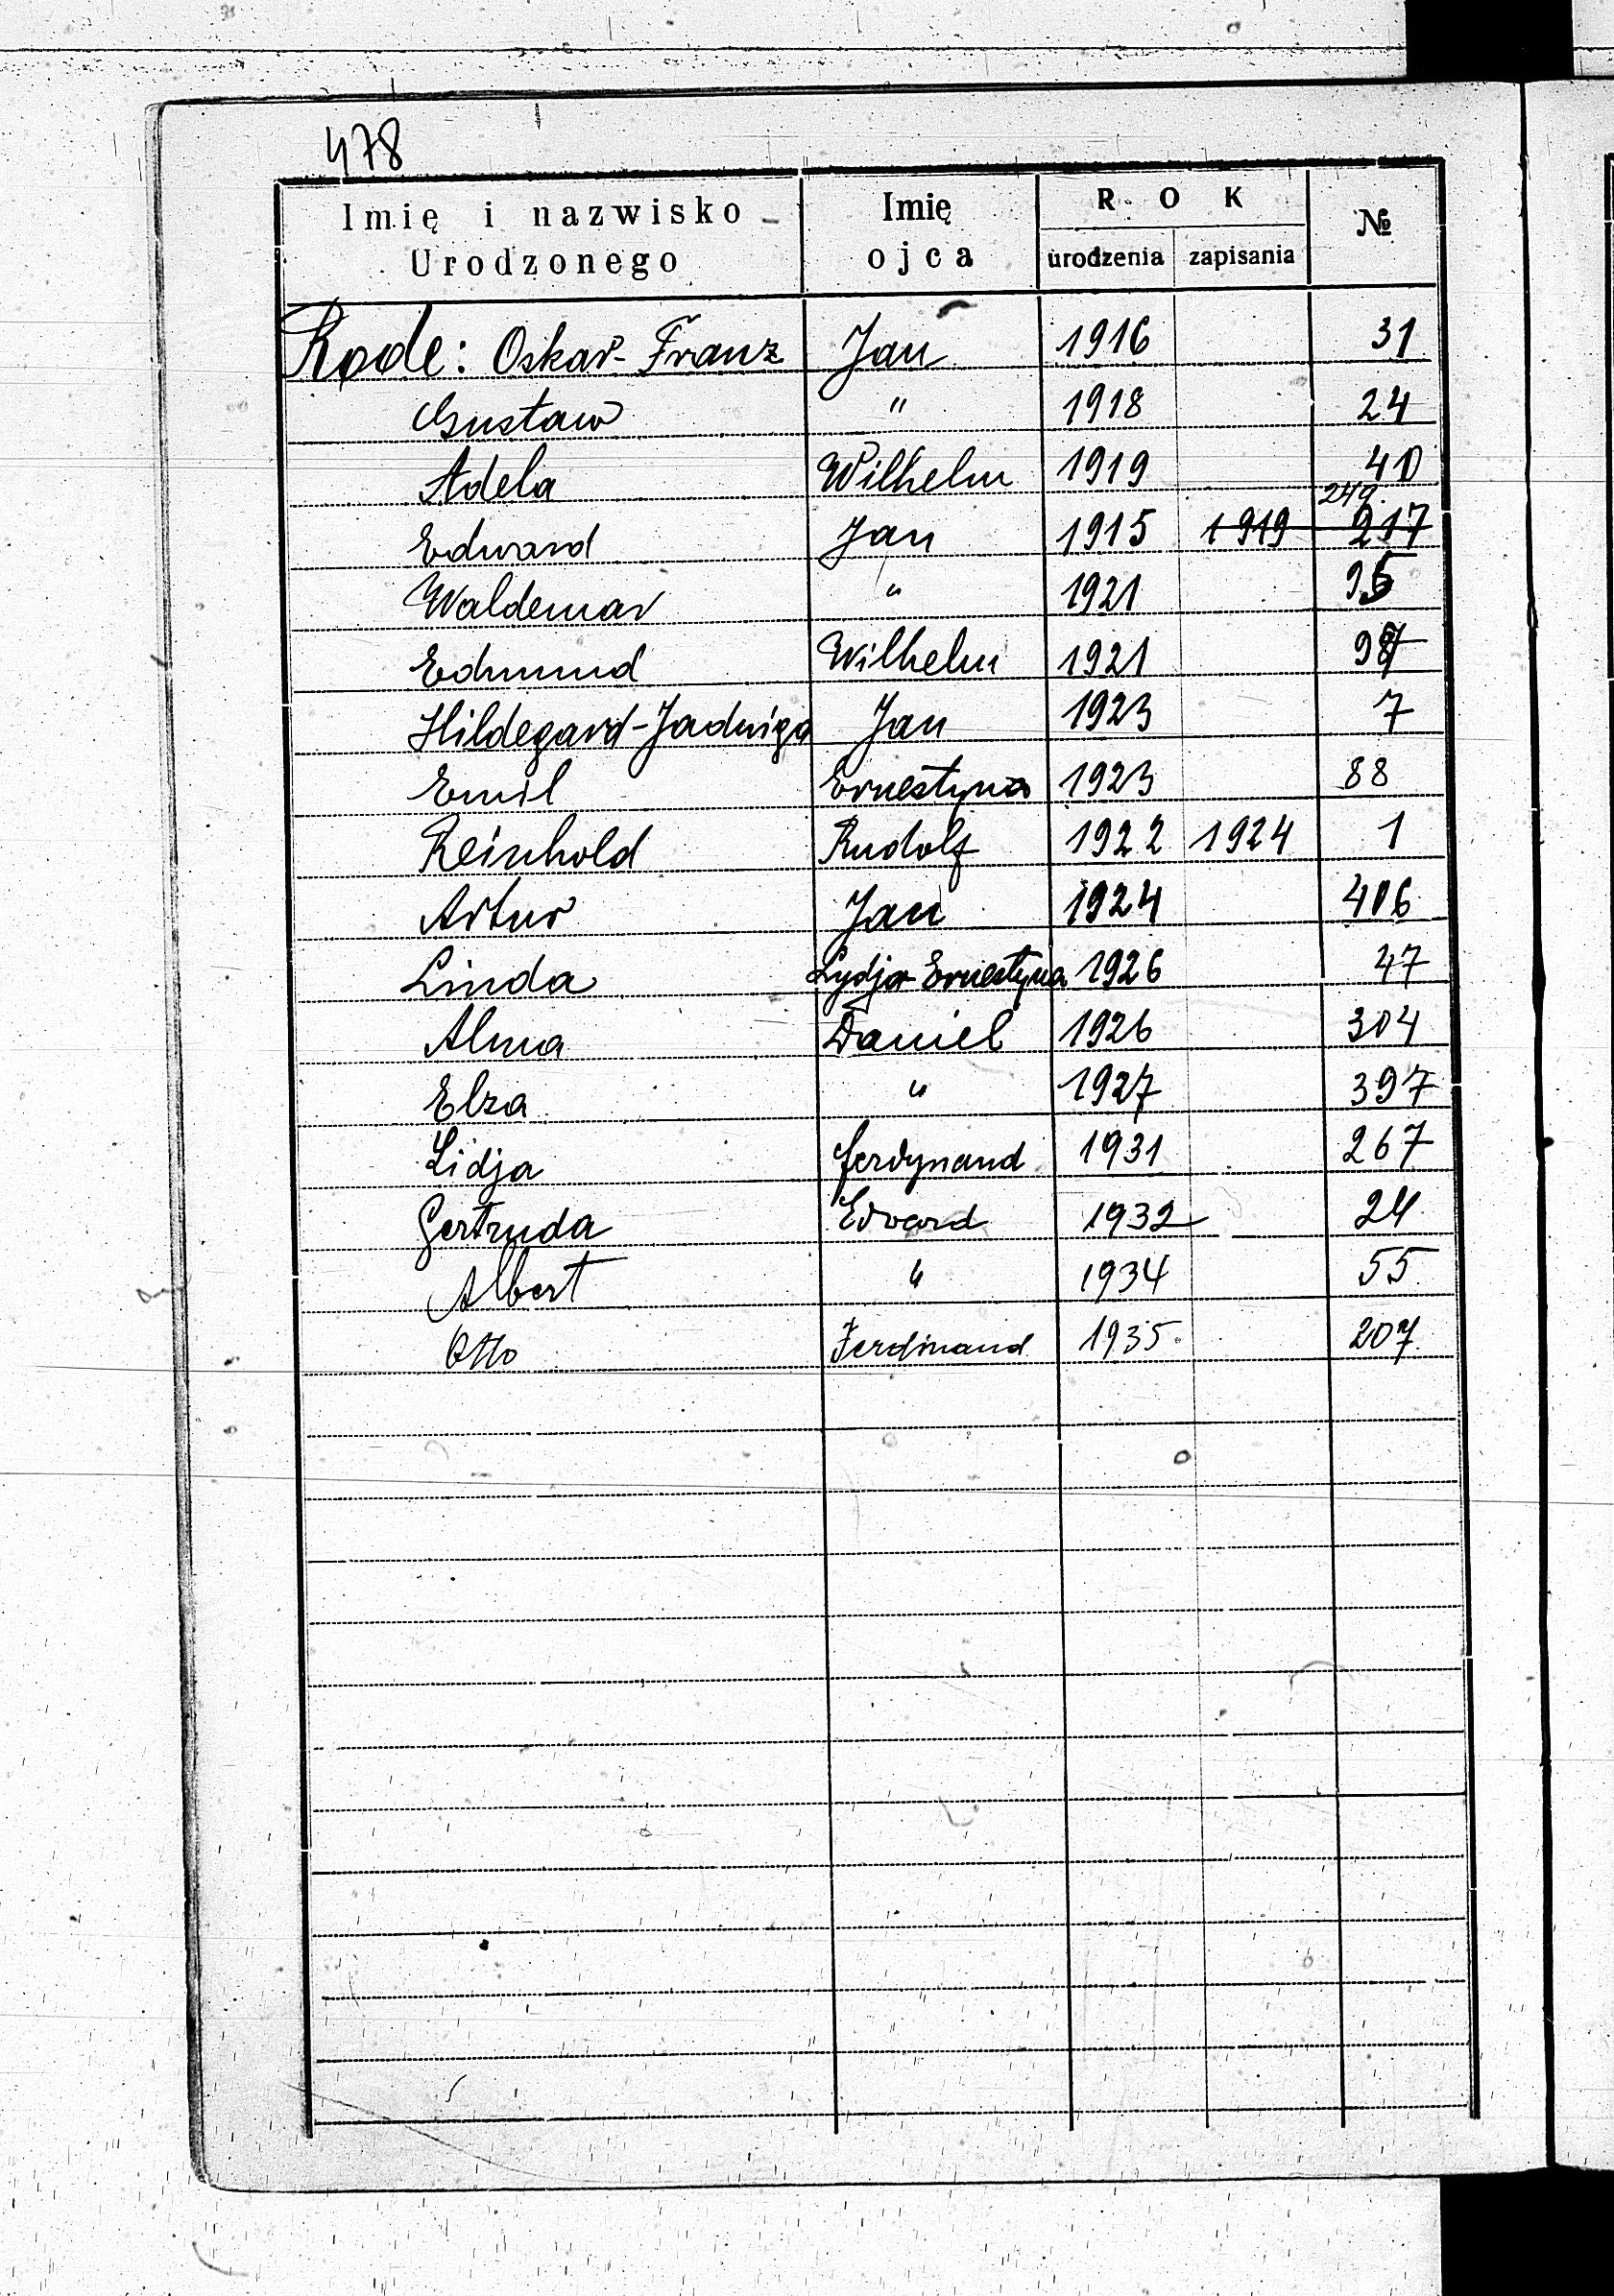 478
Imię i nazwisko Urodzonego Imię ojca ROK urodzenia zapisania №
Rode: Oskar-Franz Jan 1916 31
Gustaw " 1918 24
Adela Wilhelm 1919 40
249.
Edward Jan 1915 1919 217
Waldemar " 1921 95
Edmund Wilhelm 1921 97
Hildegard-Jadwiga Jan 1923 7
Emil Ernestyna 1923 88
Reinhold Rudolf 1922 1924 1
Artur Jan 1924 406
Linda Lydja Ernestyna 1926 47
Alma Daniel 1926 304
Elza " 1927 397
Lidja Ferdynand 1931 267
Gertruda Edward 1932 24
Albert " 1934 55
Otto Ferdinand 1935. 207